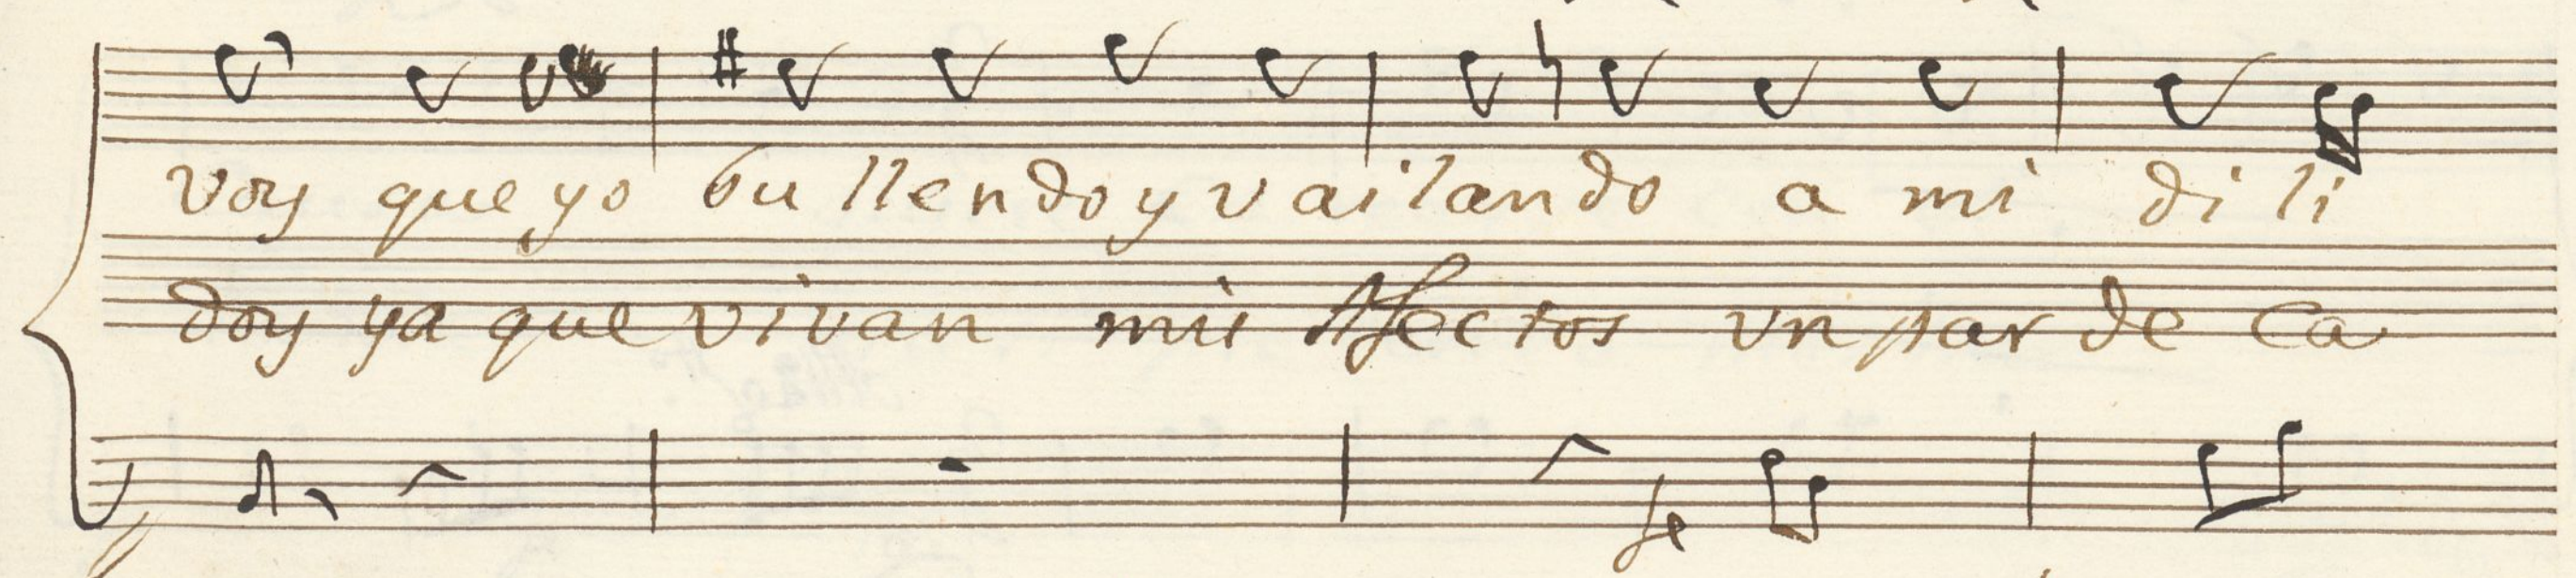 voy que yo bu llen do y vai lan do a mi di li
doy ya que vivan mis Afectos vn par de ca